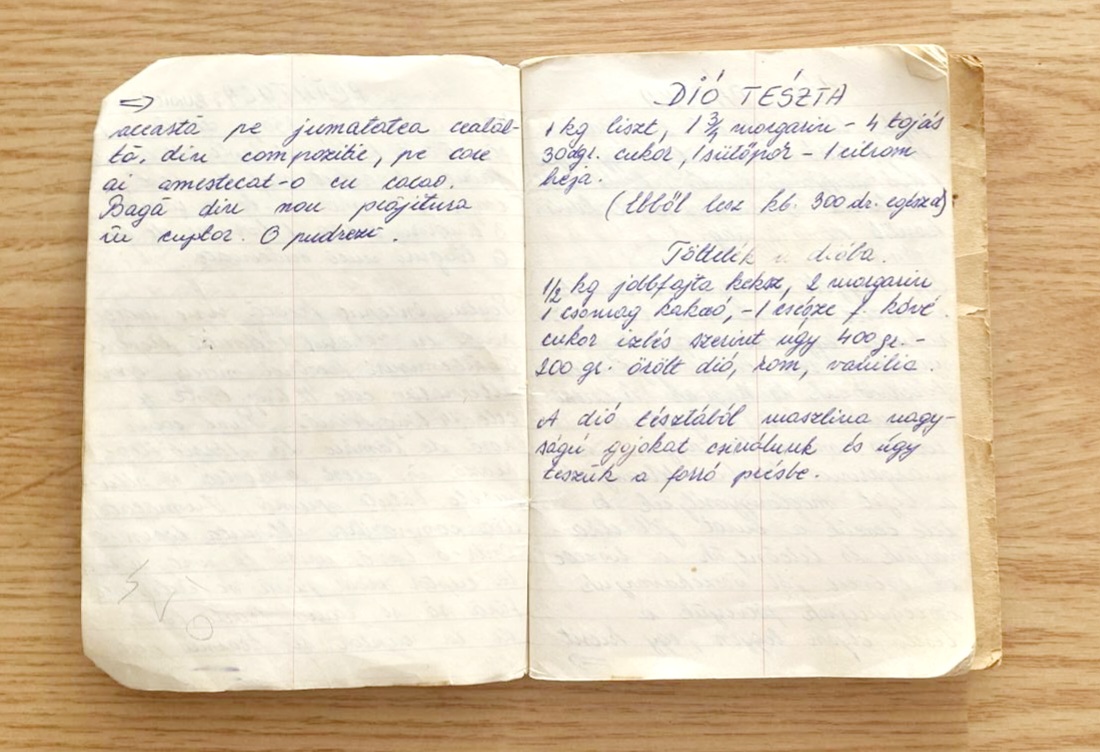 această pe jumatatea cealal-
tă, din compozitie, pe care
ai amestecat-o cu cacao.
Bagă din nou prăjitura
în cuptor. O pudrezi.
DIÓ TÉSZTA
1 kg liszt, 1 3/4 margarin - 4 tojás
30dgr. cukor, 1 sütőpor - 1 citrom
héja.
(Ebből lesz kb. 300 dr. egészed)
Töltelék a dióba.
1/2 kg jobbfajta keksz, 2 margarin
1 csomag kakaó, - 1 csésze f. kávé.
cukor izlés szerint úgy 400 gr. -
200 gr. örölt dió, rom, vanilia.
A dió tésztából maszlina nagy-
ságú gojokat csinálunk és úgy
teszük a forró présbe.